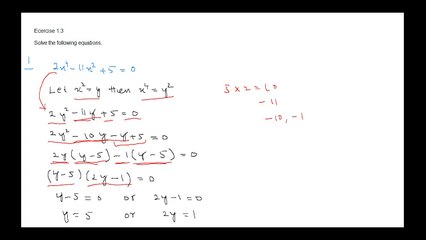 Ecercise 1.3
Solve the following equations.
1 2x⁴-11x²+5=0
Let x²=y then x⁴=y²
2y²-11y+5=0
2y²-10y-y+5=0
2y(y-5)-1(y-5)=0
(y-5)(2y-1)=0
y-5=0 or 2y-1=0
y=5 or 2y=1
5×2=10
-11
-10,-1